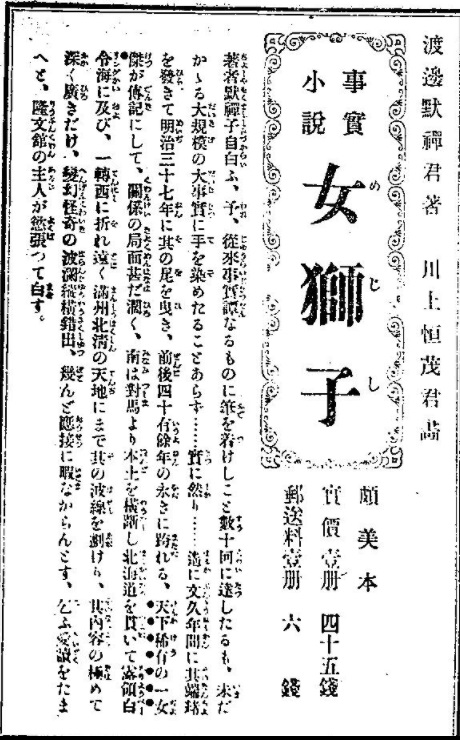 渡邊默禪君著 川上恒茂君畵
事實
小說
女獅子
めじし
頗美本
實價壹册 四十五錢
郵送料壹册 六錢
著者默禪子自白ふ、予、從來事實譚なるものに筆を着けしこと數十回に達したるも、未だ
かゝる大規模の大事實に手を染めたることあらず……實に然り……遠に文久年間に其端緖
を發きて明治三十七年に其の足を曳き、前後四十有餘年の永きに跨れる、天下稀有の一女
傑が傳記にして、關係の局面甚だ濶く、南は對馬より本土を橫斷し北海道を貫いて露領白
令海に及び、一轉西に折れ遠く滿州北淸の天地にまで其の波線を劃けり、其內容の極めて
深く廣きだけ、變幻怪奇の波瀾縱橫錯出、幾んど應接に暇なからんとす、乞ふ愛讀をたま
へと、隆文館の主人が慾張つて白す。